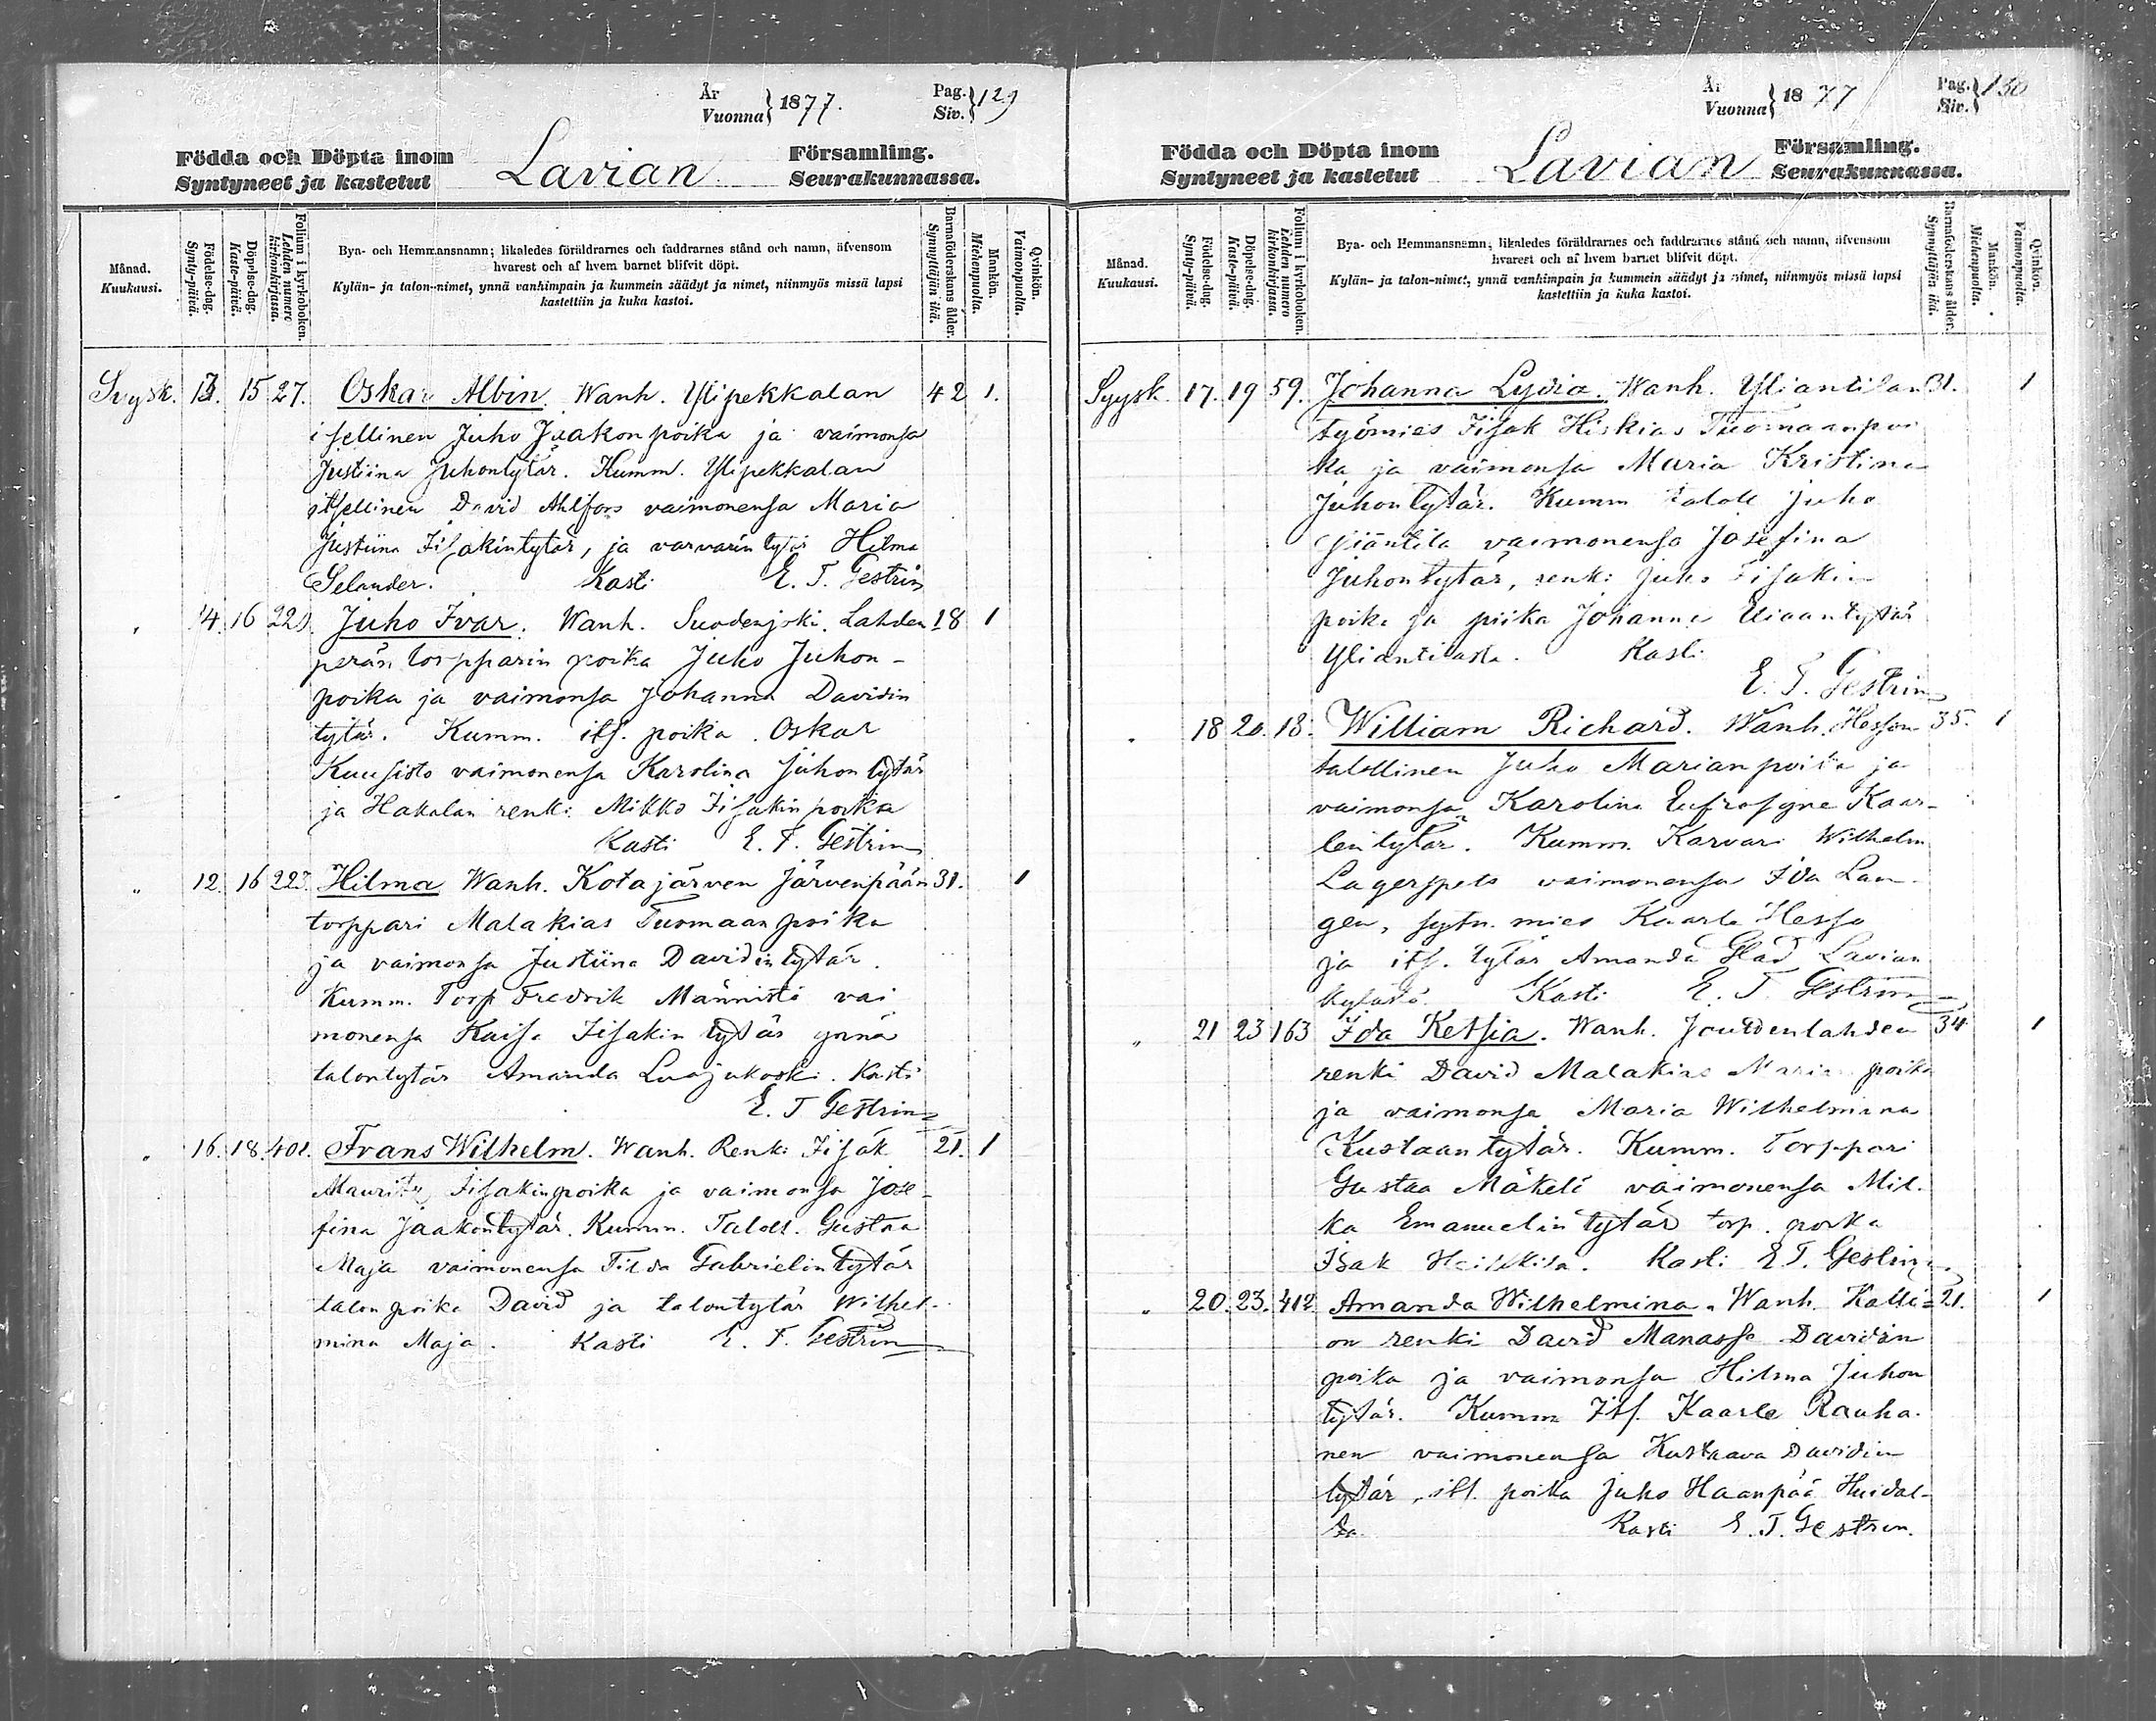 År
Vuonna } 1877.
Pag.
Siv. } 129
Födda och Döpta inom
Syntyneet ja kastetut
Lavian
Församling.
Seurakunnassa.
Månad.
Kuukausi.
Födelse-dag.
Synty-päivä.
Döpelse-dag.
Kaste-päivä.
Folium i kyrkoboken.
Lehden numero kirkonkirjassa.
Bya- och Hemmansnamn; likaledes föräldrarnes och faddrarnes stånd och namn, äfvensom
hvarest och af hvem barnet blifvit döpt.
Kylän- ja talon-nimet, ynnä vanhimpain ja kummein säädyt ja nimet, niinmyös missä lapsi
kastettiin ja kuka kastoi.
Barnaföderskans ålder.
Synnyttäjän ikä.
Mankön.
Miehenpuolia.
Qvinkön.
Vaimonpuolia.
Syysk. 13. 15 27. Oskar Albin. Wanh. Ylipekkalan 42 1.
itsellinen Juho Jaakonpoika ja vaimonsa
Justiina Juhontytär. Kumm. Ylipekkalan
itsellinen David Ahlfors vaimonensa Maria
Justiina Iisakintytär, ja varvarin tytär Hilma
Selander. Kasti E. T. Gestrin
14. 16 229. Juho Ivar. Wanh. Suodenjoki. Lahden 18 1
perän torpparin poika Juho Juhon-
poika ja vaimonsa Johanna Davidin
tytär. Kumm. its. poika Oskar
Kuusisto vaimonensa Karolina Juhontytär
ja Hakalan renki Mikko Iisakinpoika
Kasti E. T. Gestrin
" 12. 16 223. Hilma Wanh. Kotajärven Järvenpään 31. 1
torppari Malakias Tuomaanpoika
ja vaimonsa Justiina Davidintytär.
Kumm. Torp Fredrik Männistö vai
monensa Kaisa Iisakin tytär ynnä
talontytär Amanda Luojukoski. Kasti
E. T Gestrin
" 16. 18. 401. Frans Wilhelm. Wanh. Renki Iisak 21. 1
Mauritz Iisakinpoika ja vaimonsa Jose-
fina Jaakontytär. Kumm. Taloll. Gustaa
Maja vaimonensa Tilda Gabrielintytär
talon poika David ja talontytär Wilhel-
mina Maja. Kasti E. T. Gestrin
År
Vuonna } 1877
Pag.
Siv. } 130
Födda och Döpta inom
Syntyneet ja kastetut
Lavian
Församling.
Seurakunnassa.
Månad.
Kuukausi.
Födelse-dag.
Synty-päivä.
Döpelse-dag.
Kaste-päivä.
Folium i kyrkoboken.
Lehden numero kirkonkirjassa.
Bya- och Hemmansnamn; likaledes föräldrarnes och faddrarnes stånd och namn, äfvensom
hvarest och af hvem barnet blifvit döpt.
Kylän- ja talon-nimet, ynnä vanhimpain ja kummein säädyt ja nimet, niinmyös missä lapsi
kastettiin ja kuka kastoi.
Barnaföderskans ålder.
Synnyttäjän ikä.
Mankön.
Miehenpuolia.
Qvinkön.
Vaimonpuolia.
Syysk. 17. 19 59. Johanna Lydia. Wanh. Yliantilan 31. 1
työmies Iisak Hiskias Tuomaanpoi
ka ja vaimonsa Maria Kristina
Juhontytär. Kumm taloll Juho
vaimonensa Josefina
Juhontytär, renki Juho Iisakin
poika ja piika Johanna
Yliantilasta. Kasti
E. T. Gestrin
" 18 20. 18. William Richard. Wanh. Hesson 35. 1
talollinen Juho Marianpoika ja
vaimonsa Karolina Eufrosyne Kaar-
lentytär. Kumm. Karvari Wilhelm
Lagerspets vaimonensa Ida Lan-
gen, sytn. mies Kaarle Hesso
ja its. tytär Amanda Glad Lavian
kylästä. Kasti E. T. Gestrin
" 21 23 163 Ida Ketsia. Wanh. Joutdenlahden 34 1
renki David Malakias Marian poika
ja vaimonsa Maria Wilhelmina
Kustaantytär. Kumm. Torppari
Gustaa Mäkelä vaimonensa Mil-
ka Emanuelin tytär torp. poika
Isak Heikkilä. Kasti E. T. Gestrin
" 20. 23. 412 Amanda Wilhelmina. Wanh. Kalli- 21. 1
on renki David Manasse Davidin
poika ja vaimonsa Hilma Juhon
tytär. Kumm Its. Kaarle Rauha-
nen vaimonensa Kustaava Davidin
tytär, its. poika Juho Haanpää
Kasti E. T. Gestrin.